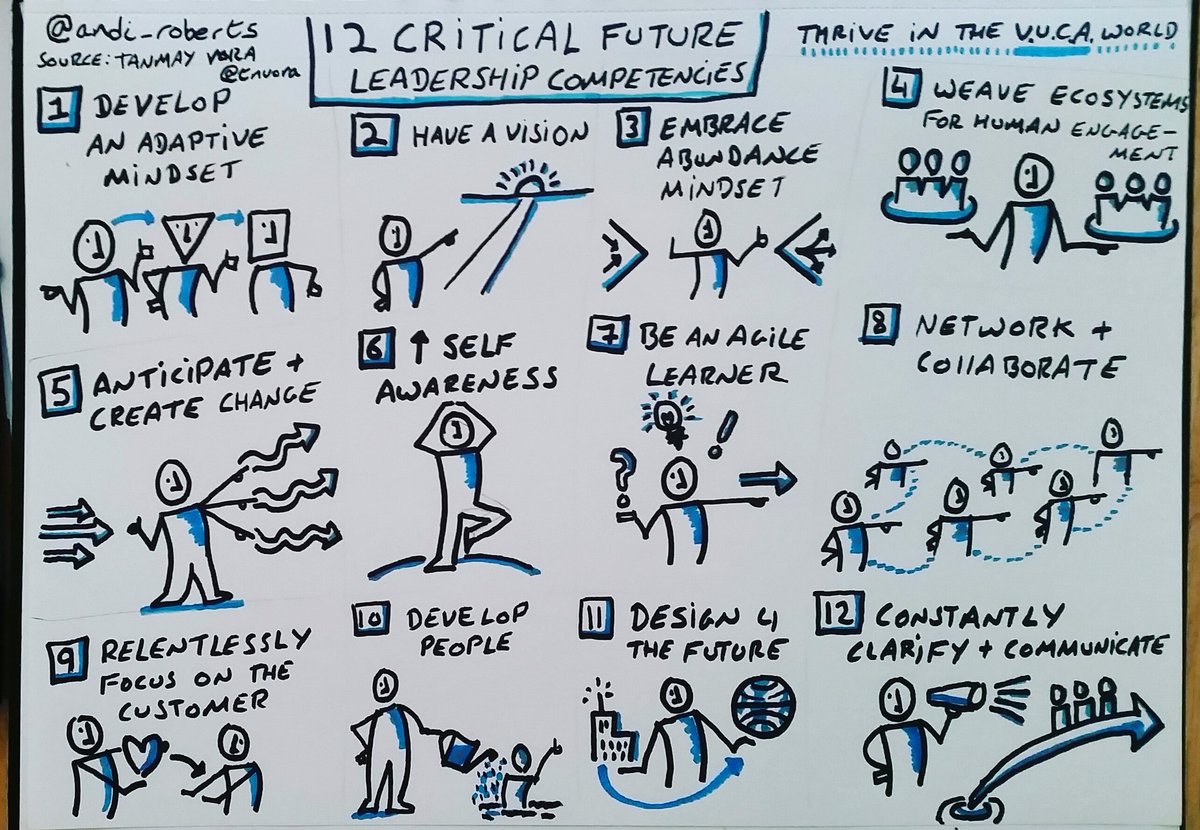 @andi_roberts
SOURCE: TANMAY VORA
@tnvora
12 CRITICAL FUTURE
LEADERSHIP COMPETENCIES
THRIVE IN THE V.U.C.A. WORLD
1 DEVELOP
AN ADAPTIVE
MINDSET
2 HAVE A VISION
3 EMBRACE
ABUNDANCE
MINDSET
4 WEAVE ECOSYSTEMS
FOR HUMAN ENGAGE-
MENT
5 ANTICIPATE +
CREATE CHANGE
6 ↑ SELF
AWARENESS
7 BE AN AGILE
LEARNER
? !
8 NETWORK +
COLLABORATE
9 RELENTLESSLY
FOCUS ON THE
CUSTOMER
10 DEVELOP
PEOPLE
11 DESIGN 4
THE FUTURE
12 CONSTANTLY
CLARIFY + COMMUNICATE